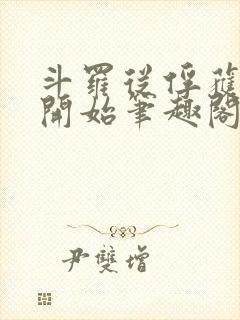 斗羅從俘蘿
開始筆趣閣
尹雙增